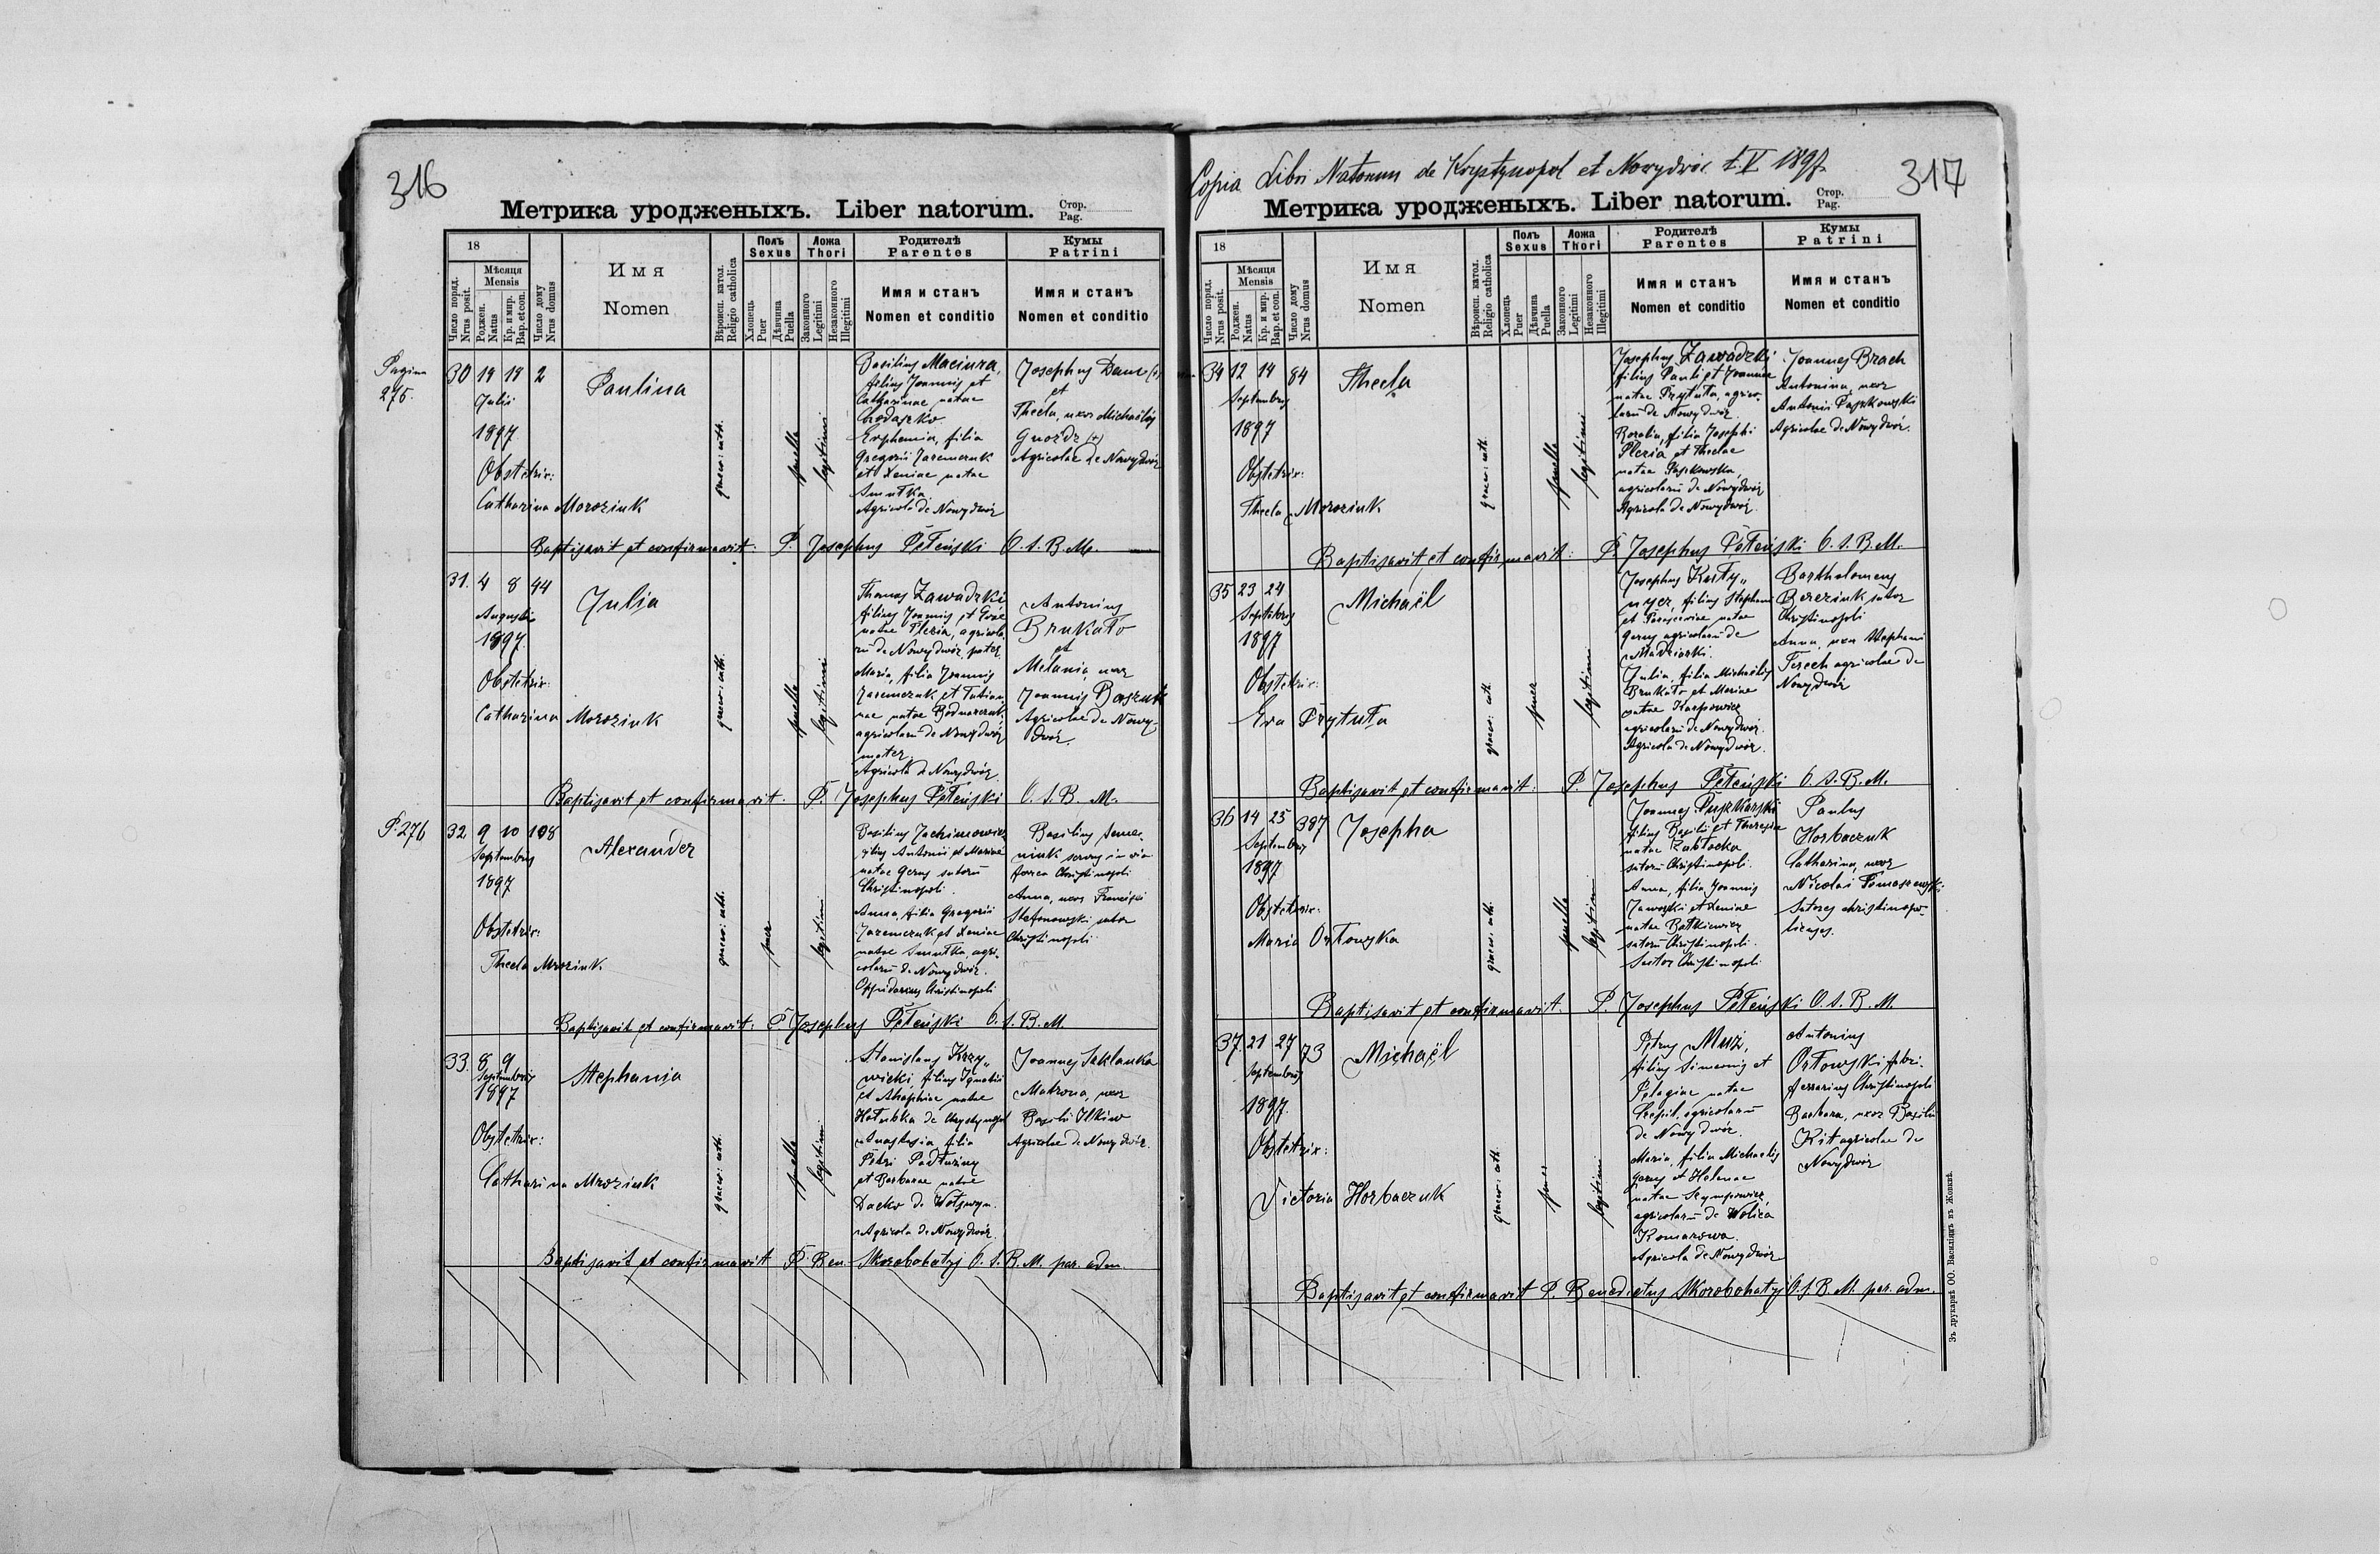 316
Метрика уродженыхъ. Liber natorum.
Стор.
Pag.
18
Число поряд.
Nrus posit.
Мѣсяця
Mensis
Роджен.
Natus
Кр. и мир.
Bap. et con.
Число дому
Nrus domus
Имя
Nomen
Вѣроисп. катол.
Religio catholica
Полъ
Sexus
Хлопець
Puer
Дѣвчина
Puella
Ложа
Thori
Законного
Legitimi
Незаконного
Illegitimi
Родителѣ
Parentes
Имя и станъ
Nomen et conditio
Кумы
Patrini
Имя и станъ
Nomen et conditio
Pagina
275.
30 2
Julii
1897
Obstetrix:
Catharina Moroziuk
Paulina
graeco: cath.
puella
legitimi
Basilius Maciura,
filius Joannis et
Catharinae natae
Chodaczko.
Euphemia, filia
Gregorii Jaremczuk
et Xeniae natae
Smutka.
Agricola de Nowydwór
Josephus
et
Thecla, uxor Michaëlis
Gwozdz (+)
Agricolae de Nowydwór
Baptisavit et confirmavit: P. Josephus Peteński O.S.B.M.
31. 4 8 44
Augusti
1897.
Obstetrix:
Catharina Moroziuk
Julia
graeco: cath.
puella
legitimi
Thomas Zawadzki
filius Joannis et
natae Plezia, agricola
rū de Nowydwór, pater.
Maria, filia Joannis
Jaremczuk et Tatian
nae natae Bodnarczuk
agricolarū de Nowydwór
mater.
Agricola de Nowydwór
Antonius
Brukało
et
Melania, uxor
Joannis
Agricolae de Nowy-
dwór.
Baptisavit et confirmavit. P. Josephus Peteński O.S.B.M.
P. 276
32 9 10 108
Septembris
1897
Obstetrix:
Thecla Mroziuk.
Alexander
graeco: cath.
puer
legitimi
Basilius Jachimowicz
filius Antonii et Marinae
natae Gerus sutorū
Christinopoli.
Anna, filia Gregorii
Jaremczuk et Xeniae
natae Smutka, agri-
colarū de Nowydwór.
Oppidanus Christinopoli
Basilius Seme-
niuk servus in via
ferrea Christinopoli
Anna, uxor Francisci
Stefanowski sutor
Christinopoli
Baptisavit et confirmavit: P. Josephus Peteński O.S.B.M.
33. 8 9
Septembris
1897
Obstetrix:
Catharina Mroziuk
Stephania
graeco: cath.
puella
legitimi
Stanislaus Krzy„
wicki, filius Ignatii
et natae
Hołubka de Chrystynopol
Anastasia filia
Petri
et Barbarae natae
Dacko de Wołswyn.
Agricola de Nowydwór.
Joannes Saklanka
Matrona, uxor
Basilii Ilkiw
Agricolae de Nowydwór.
Baptisavit et confirmavit P. Ben. Skorobohatyj O.S.B.M. par. adm.
Copia Libri Natorum de Krystynopol et Nowydwór t. V 1897.
317
Метрика уродженыхъ. Liber natorum.
Стор.
Pag.
18
Число поряд.
Nrus posit.
Мѣсяця
Mensis
Роджен.
Natus
Кр. и мир.
Bap. et con.
Число дому
Nrus domus
Имя
Nomen
Вѣроисп. катол.
Religio catholica
Полъ
Sexus
Хлопець
Puer
Дѣвчина
Puella
Ложа
Thori
Законного
Legitimi
Незаконного
Illegitimi
Родителѣ
Parentes
Имя и станъ
Nomen et conditio
Кумы
Patrini
Имя и станъ
Nomen et conditio
34 12 14 84
Septembris
1897
Obstetrix:
Thecla Moroziuk
Thecla
graeco: cath.
puella
legitimi
Josephus Zawadzki
filius Pauli et Joannae
natae Prytuła, agrico-
larū de Nowydwór.
Rozalia, filia Josephi
Plezia et Theclae
natae
agricolarū de Nowydwór
Agricola de Nowydwór.
Joannes Brach
Antonina, uxor
Antonii Paszkowski
Agricolae de Nowydwór.
Baptisavit et confirmavit: P. Josephus Peteński O.S.B.M.
35 23 24
Septembris
1897
Obstetrix:
Eva Prytuła
Michaël
graeco: cath.
puer
legitimi
Josephus
filius Stephani
et Parascewiae natae
Gerus agricolarū de
Madziarki.
Julia, filia Michaëlis
Brukało et Mariae
natae Karpowicz
agricolarū de Nowydwór.
Agricola de Nowydwór.
Bartholomeus
Bereziuk sutor
Christinopoli
Anna, uxor Stephani
Terech agricolae de
Nowydwór
Baptisavit et confirmavit: P. Josephus Peteński O.S.B.M.
36 14 25 387
Septembris
1897
Obstetrix:
Maria Orłowska
Josepha
graeco: cath.
puella
legitimi
Joannes Puszkarski
filius Basilii et Theresiae
natae Zabłocka
sutorū Christinopoli.
Anna, filia Joannis
Jaworski et Xeniae
natae Bałkiewicz
sutorū Christinopoli.
Sutor Christinopoli
Paulus
Horbaczuk
Catharina, uxor
Nicolai Tomaszewski
Sutores christinopo-
lienses.
Baptisavit et confirmavit. P. Josephus Peteński O.S.B.M.
37. 21 27 73
Septembris
1897.
Obstetrix:
Victoria Horbaczuk
Michaël
graeco: cath.
puer
legitimi
Petrus Muz,
filius Simeonis et
Pelagiae natae
agricolarū
de Nowydwór.
Maria, filia Michaelis
Gerus et Helenae
natae Szympowicz,
agricolarū de Wolica
Komarowa.
Agricola de Nowydwór
Antonius
Orłowski, fabr.
ferrarius Christinopoli
Barbara, uxor Basilii
Kit agricolae de
Nowydwór
Baptisavit et confirmavit P. Benedictus Skorobohatyj O.S.B.M. par. adm.
Зъ друкарнѣ ОО. Василіянъ въ Жовквѣ.